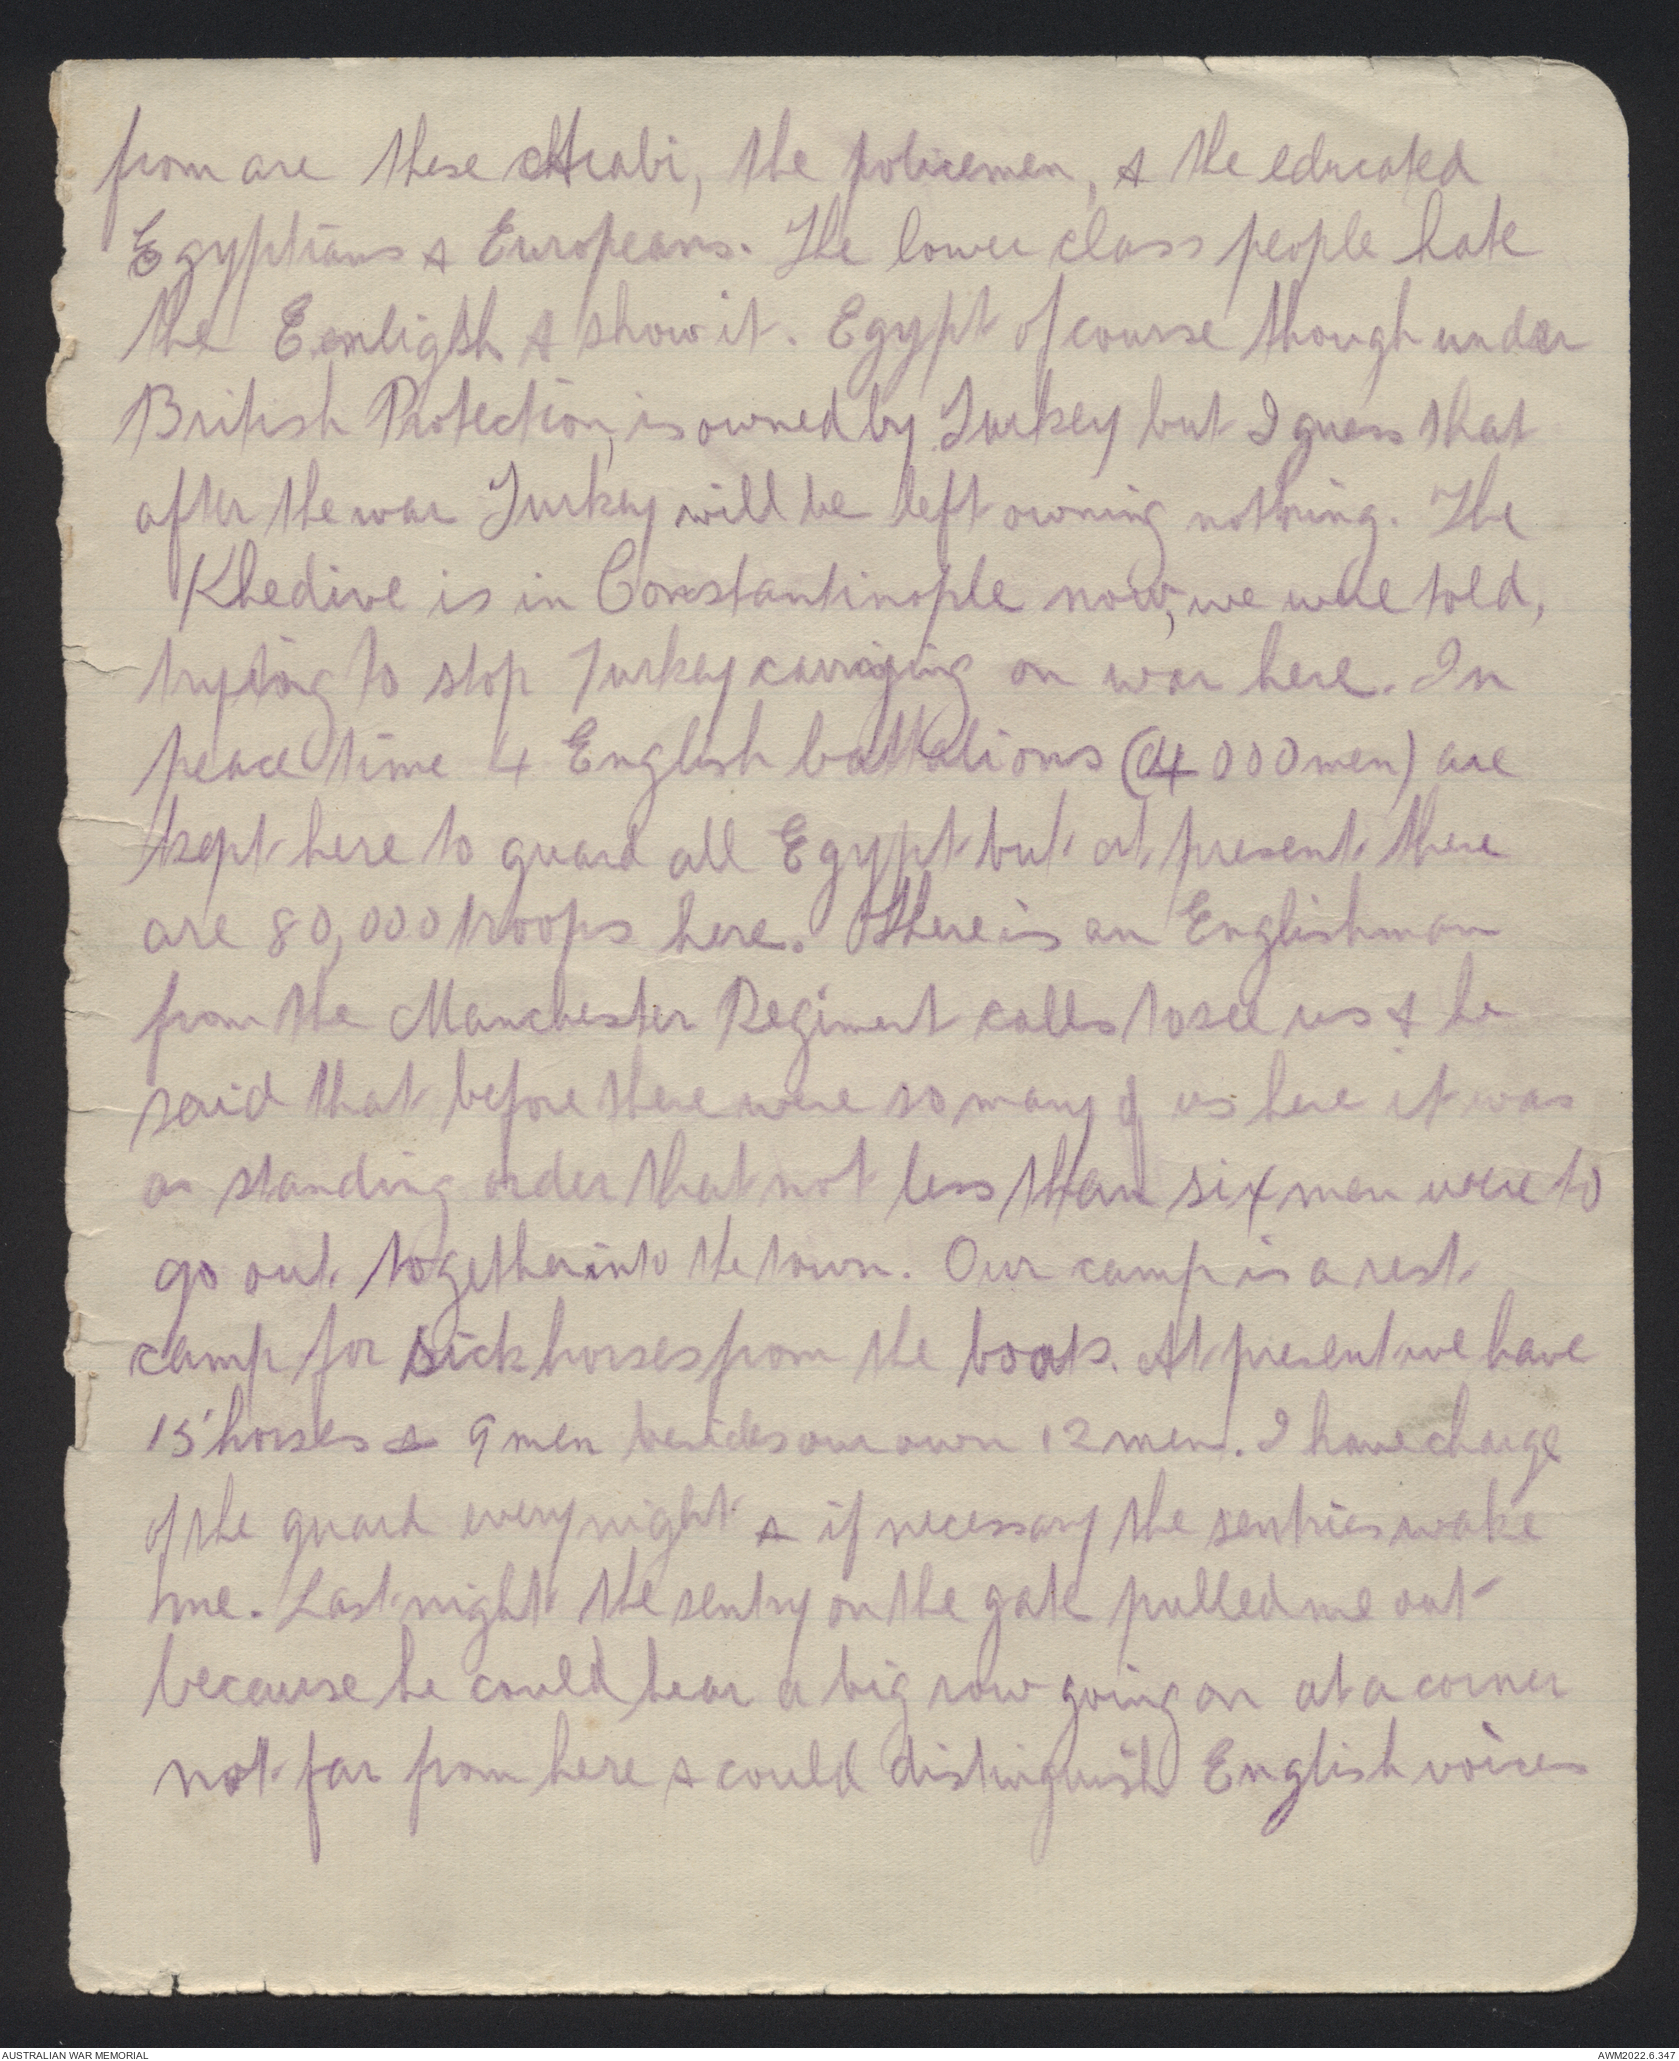 from are these Arabi, the policemen, & the educated
Egyptians & Europeans. The lower class people hate
the English & show it. Egypt of course though under
British Protection, is owned by Turkey but I guess that
after the war Turkey will be left owning nothing. The
Khedive is in Constantinople now, we were told,
trying to stop Turkey carrying on war here. In
peace time 4 English battalions (4000 men) are
kept here to guard all Egypt but at present there
are 80,000 troops here. There is an Englishman
from the Manchester Regiment calls to see us & he
said that before there were so many of us here it was
a standing order that not less than six men were to
go out together into the town. Our camp is a rest
camp for sick horses from the boats. At present we have
15 horses & 9 men besides our own 12 men. I have charge
of the guard every night & if necessary the sentries wake
me. Last night the sentry on the gate pulled me out
because he could hear a big row going on at a corner
not far from here & could distinguish English voices
AUSTRALIAN WAR MEMORIAL
AWM2022.6.347